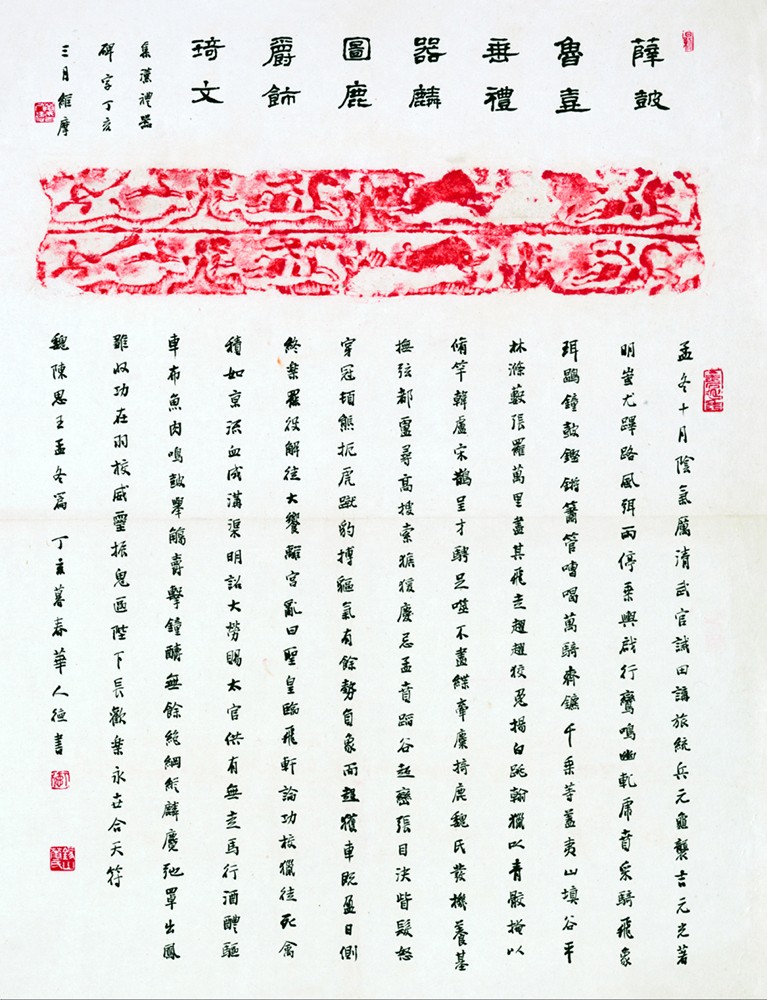 薛皷
魯壴
垂禮
器麟
圖鹿
爵飾
琦文
集漢禮器
碑字丁亥
三月維摩
孟冬十月陰氣厲清武官誡田講旅統兵元龜襲吉元光著
明蚩尤蹕路風弭雨停乘輿啟行鸞鳴幽軋虎賁采騎飛象
珥鶡鐘鼓鏗鏘簫管嘈喝萬騎齊鑣千乘等蓋夷山填谷平
林滌藪張羅萬里盡其飛走趯趯狡兔揚白跳翰獵以青骹掩以
脩竿韓盧宋鵲呈才騁足噬不盡緤牽麋掎鹿魏氏發機養基
撫弦都盧尋高搜索猴猨慶忌孟賁蹈谷超巒張目決眥髮怒
穿冠頓熊扼虎蹴豹搏貙氣有餘勢負象而趨獲車既盈日側
終樂罷役解徒大饗離宮亂曰聖皇臨飛軒論功校獵徒死禽
積如京流血成溝渠明詔大勞賜太官供有無走馬行酒醴驅
車布魚肉鳴鼓舉觴爵擊鐘醮無餘絕網縱麟麑弛罩出鳳
雛收功在羽校威靈振鬼區陛下長歡樂永世合天符
魏陳思王孟冬篇 丁亥暮春華人德書